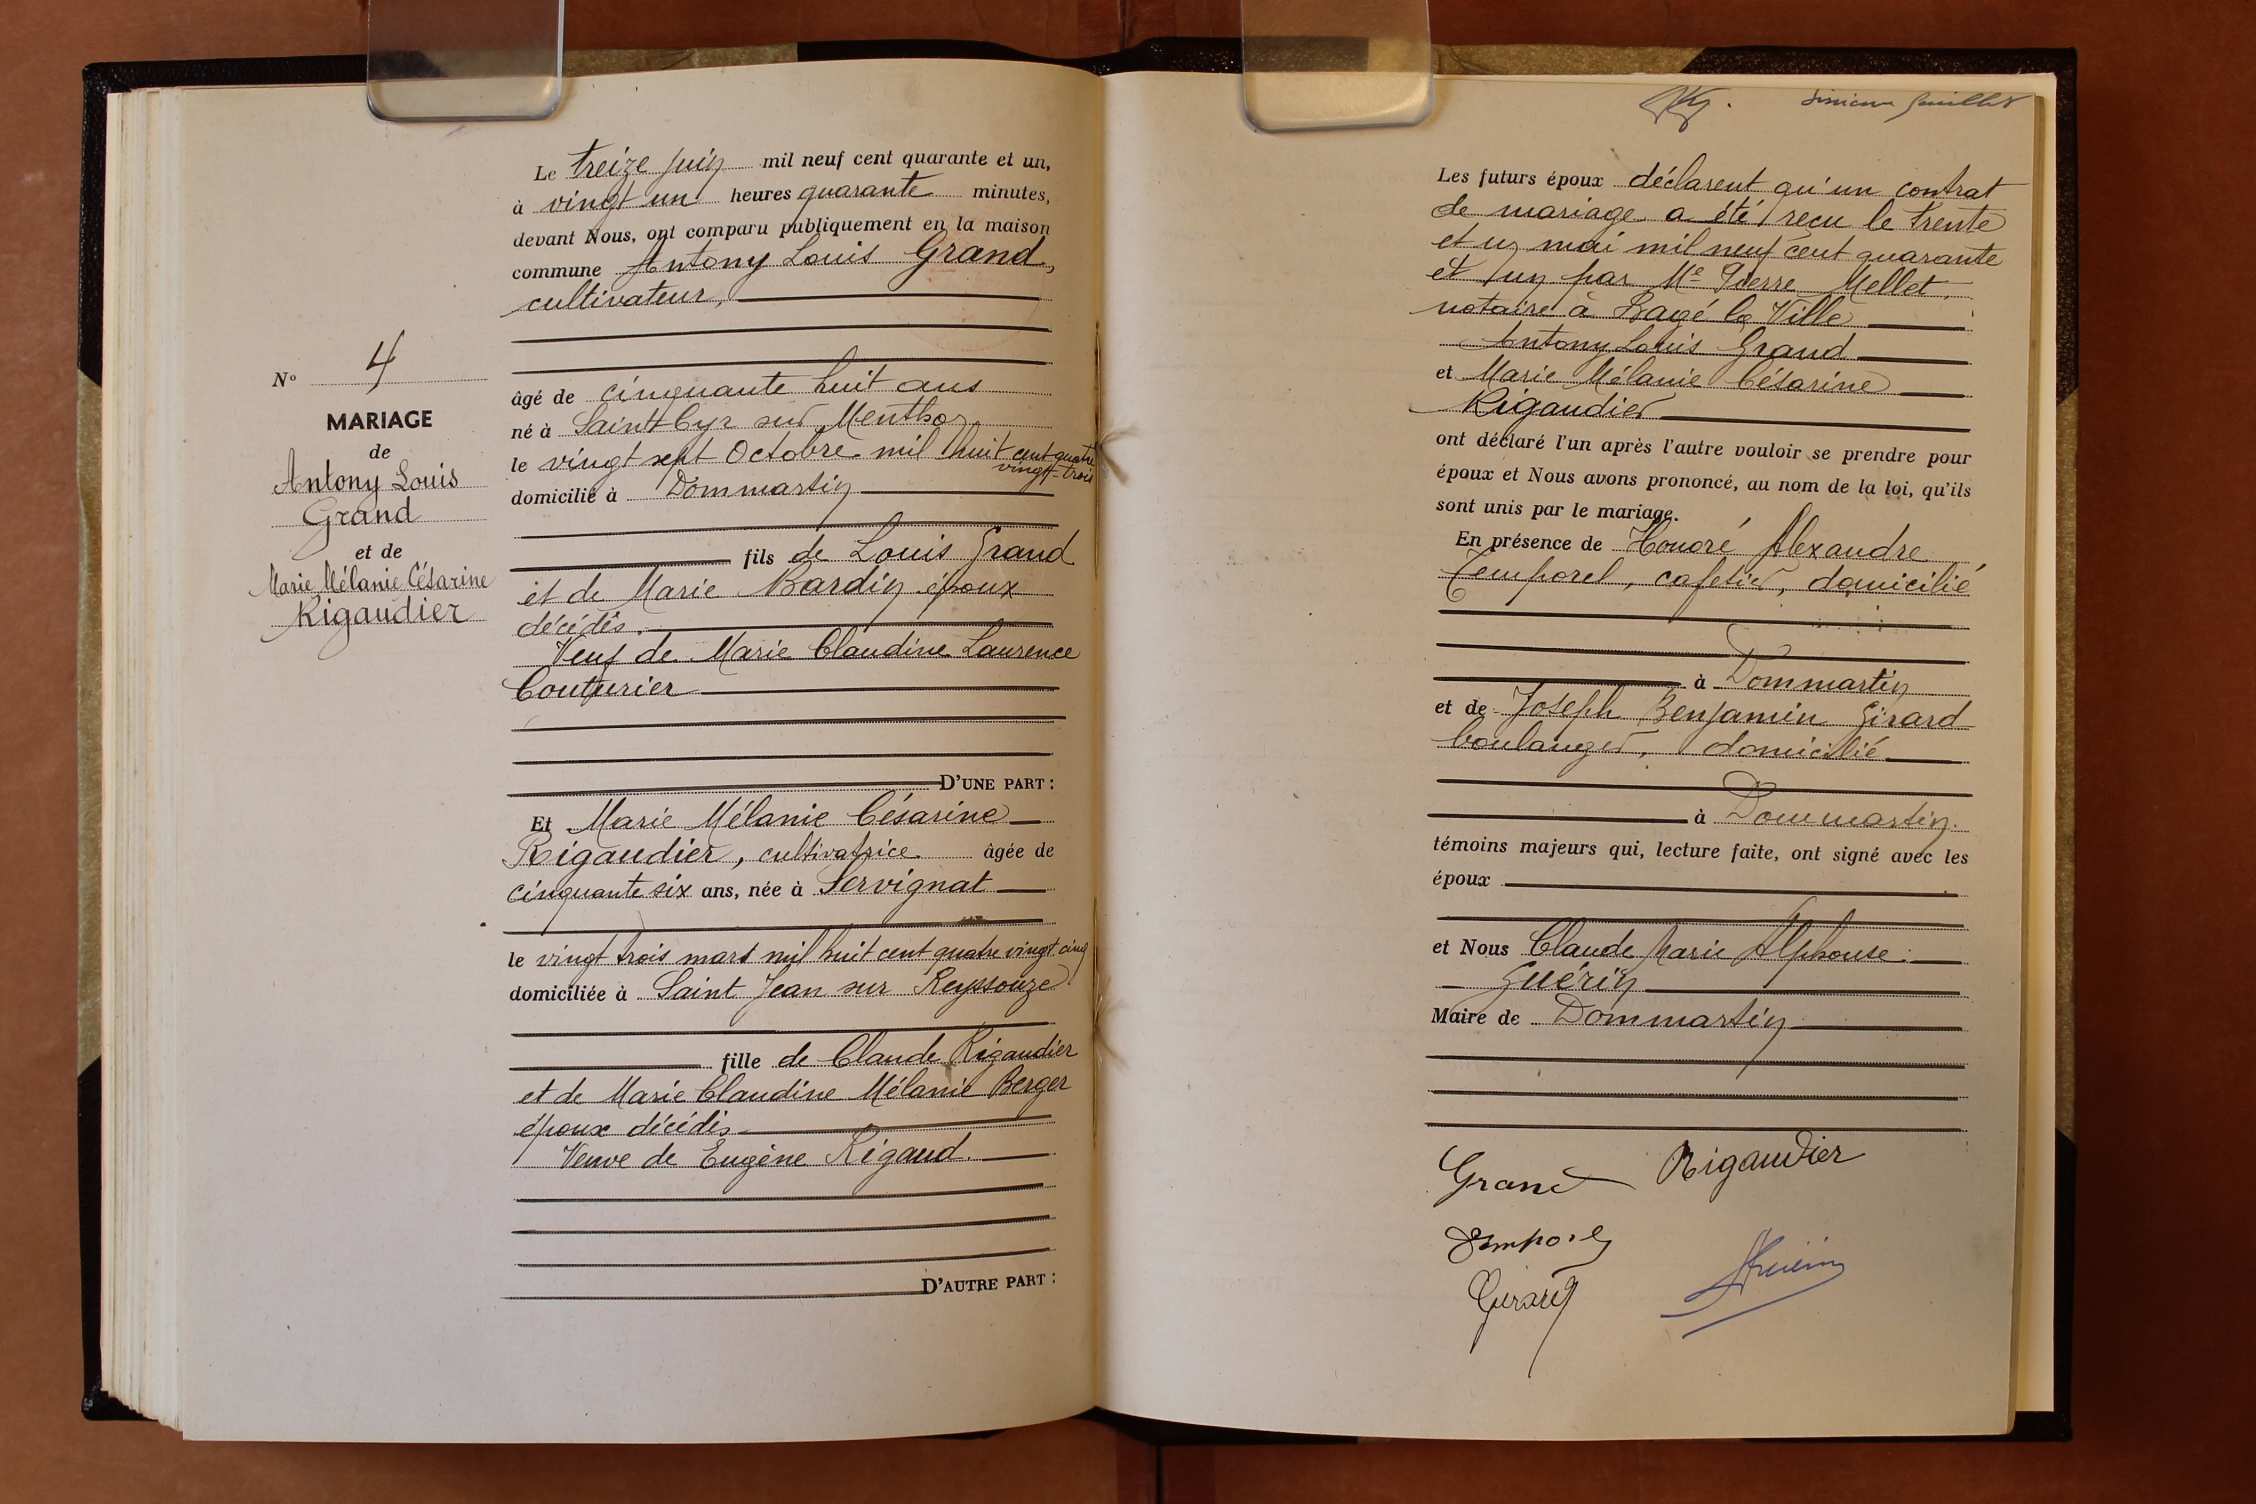 Le treize juin mil neuf cent quarante et un,
à vingt un heures quarante minutes,
devant Nous, ont comparu publiquement en la maison
commune Antony Louis Grand,
cultivateur,
N° 4
MARIAGE
de
Antony Louis
Grand
et de
Marie Mélanie Césarine
Rigaudier
âgé de cinquante huit ans
né à Saint Cyr sur Menthon
le vingt sept Octobre mil huit cent quatre
vingt-trois
domicilié à Dommartin
fils de Louis Grand
et de Marie Bardin époux
décédés.
Veuf de Marie Claudine Laurence
Couturier
D'UNE PART :
Et Marie Mélanie Césarine
Rigaudier, cultivatrice âgée de
cinquante six ans, née à Servignat
le vingt trois mars mil huit cent quatre vingt cinq
domiciliée à Saint Jean sur Reyssouze
fille de Claude Rigaudier
et de Marie Claudine Mélanie Berger
époux décédés
Veuve de Eugène Rigaud.
D'AUTRE PART :
Les futurs époux déclarent qu'un contrat
de mariage a été reçu le trente
et un mai mil neuf cent quarante
et un par Me Pierre Mellet,
notaire à Bagé la Ville
Antony Louis Grand
et Marie Mélanie Césarine
Rigaudier
ont déclaré l'un après l'autre vouloir se prendre pour
époux et Nous avons prononcé, au nom de la loi, qu'ils
sont unis par le mariage.
En présence de Honoré Alexandre
Temporel, cafetier, domicilié
à Dommartin
et de Joseph Benjamin Girard
boulanger, domicilié
à Dommartin
témoins majeurs qui, lecture faite, ont signé avec les
époux
et Nous Claude Marie Alphonse
Guérin
Maire de Dommartin
Grand Rigaudier
Temporel
Girard
AGuérin